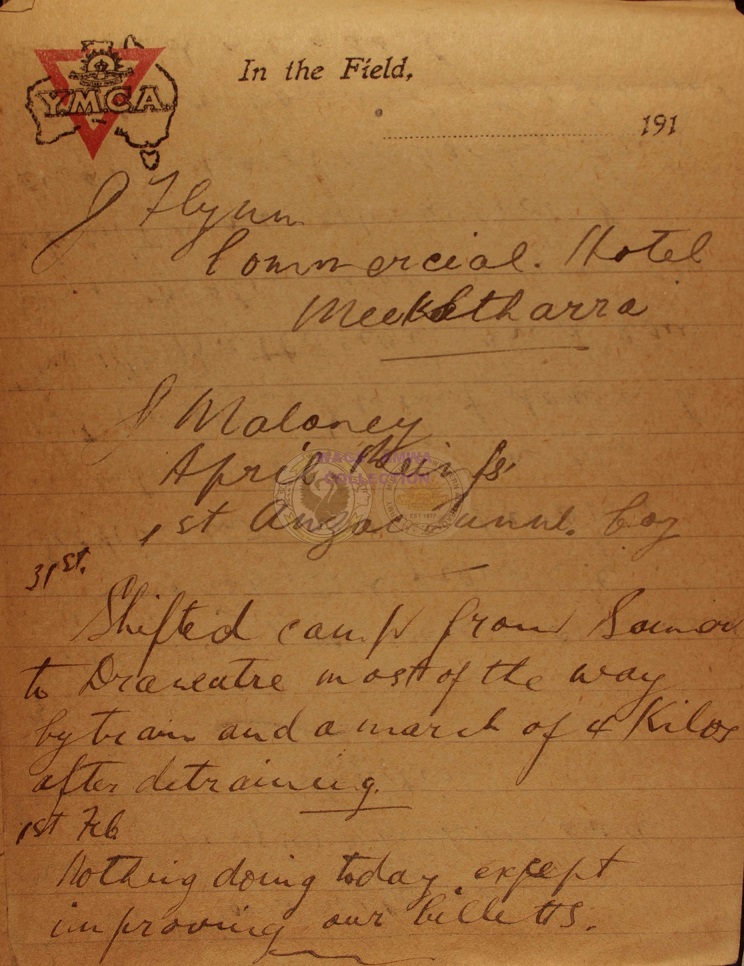 YMCA
In the Field,
191
J Flynn
Commercial. Hotel
Meekatharra
J Maloney
April Reinfs
1st Anzac Tunnl. Coy
31st.
Shifted camp from
to Dranoutre most of the way
by train and a march of 4 Kilos
after detraining.
1st Feb
Nothing doing today except
improving our billetts.